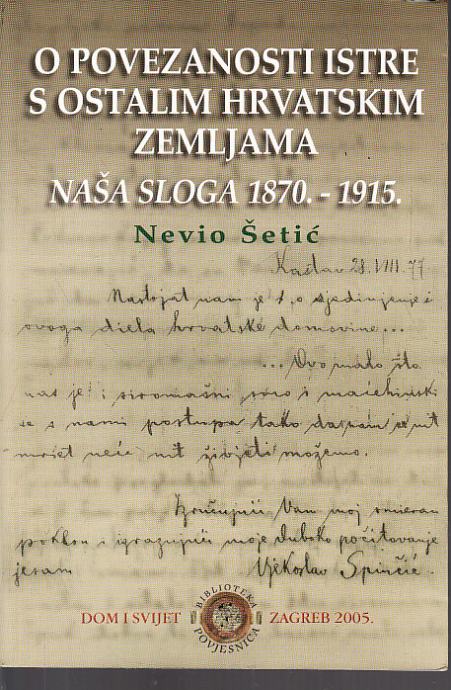 O POVEZANOSTI ISTRE
S OSTALIM HRVATSKIM
ZEMLJAMA
NAŠA SLOGA 1870. - 1915.
Nevio Šetić
Kastav 28.VIII.77
Nastojat nam je i o sjedinjenje i
ovoga diela hrvatske domovine...
... Ovo malo što
nas je i siromašni smo i maćehinski
se s nami postupa tako da nam se nit
mriet neće nit živjeti možemo.
Izručujući Vam moj smieran
poklon i izrazujući moje duboko počitovanje
jesam Vjekoslav Spinčić.
DOM I SVIJET
BIBLIOTEKA
POVJESNICA
ZAGREB 2005.